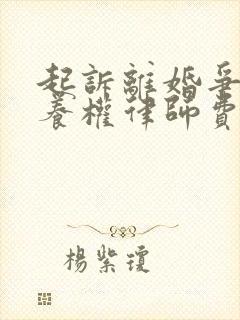 起訴離婚爭
養權律師費
楊紫瓊